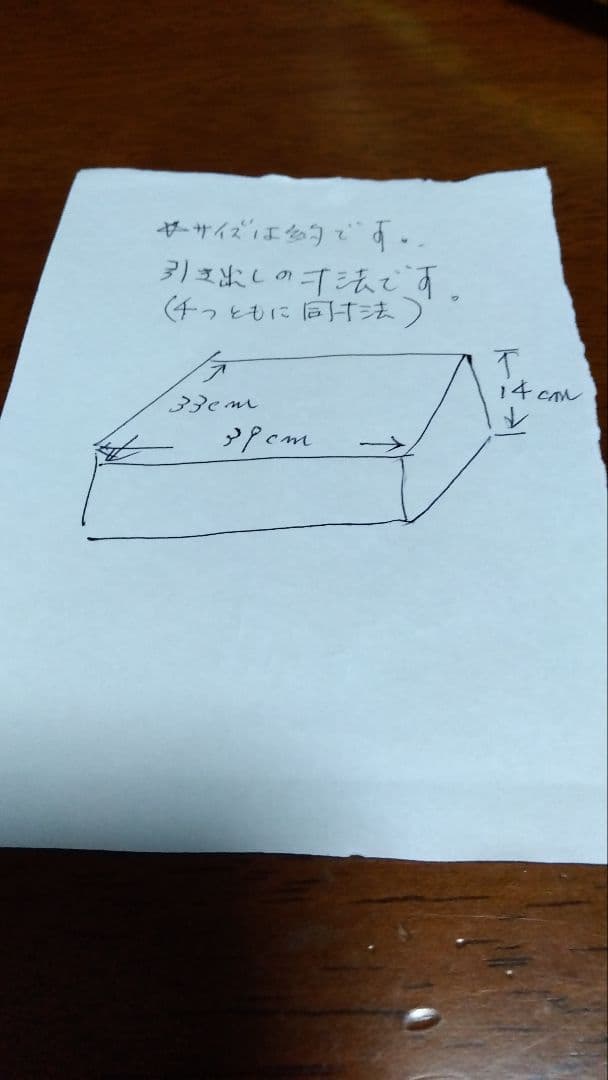 ※サイズは約です。
引き出しの寸法です。
(4つともに同寸法)
14cm
33cm
39cm